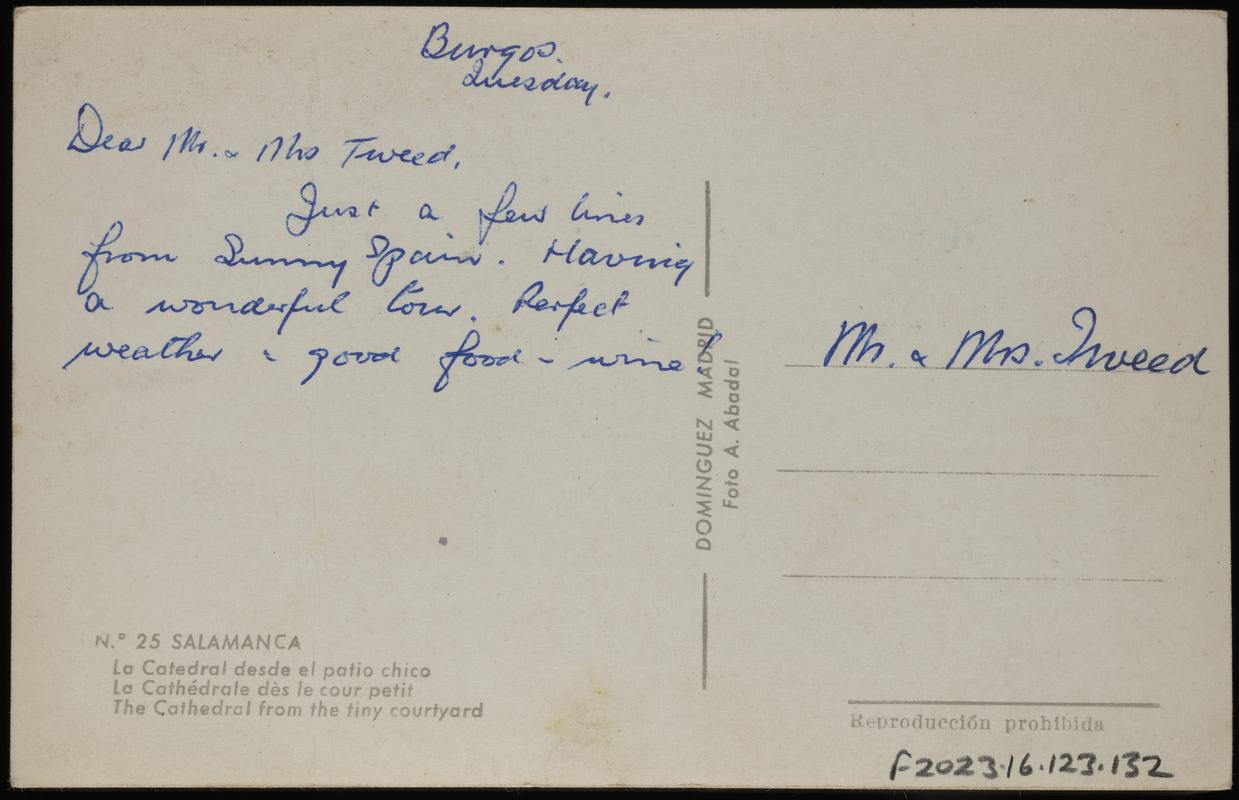 Burgos.
Tuesday.
Dear Mr. & Mrs Tweed,
Just a few lines
from Sunny Spain. Having
a wonderful tour. Perfect
weather & good food - wine!
Mr. & Mrs. Tweed
DOMINGUEZ MADRID
Foto A. Abadal
N.º 25 SALAMANCA
La Catedral desde el patio chico
La Cathédrale dès le cour petit
The Cathedral from the tiny courtyard
Reproducción prohibida
F2023.16.123.132